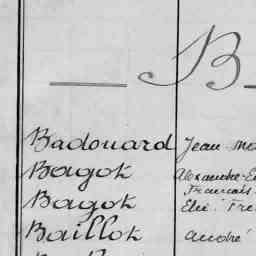 B
Badouard Jean
Bagot Alexandre
Français
Bagot Elie
Baillot André